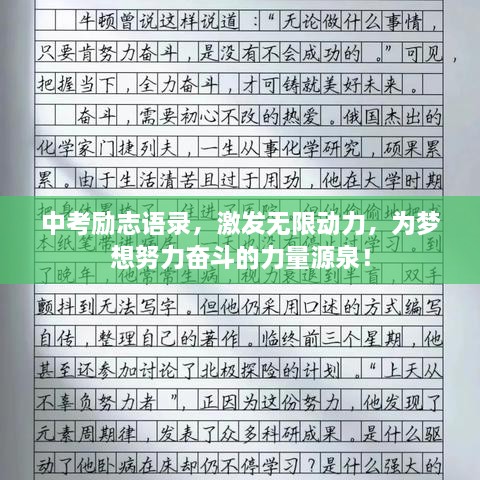 牛顿曾说这样说道：“无论做什么事情，
只要肯努力奋斗，是没有不会成功的。”可见，
把握当下，全力奋斗，才可铸就美好未来。
奋斗，需要初心不改的热爱。俄国杰出的
化学家门捷列夫，一生从事化学研究，硕果累
累。由于生活清苦且过于用功，他在大学时期
中考励志语录，激发无限动力，为梦
想努力奋斗的力量源泉！
到了晚年，他常常生病，视力衰退到半盲，双手
颤抖到无法写字。但他仍采用口述的方式编写
自传，整理自己的著作。临终前三个星期，他
甚至还参加讨论了北极探险的计划。“上天从
不辜负努力者”，正因为这份努力，他发现了
元素周期律，发表了众多科研成果。是什么驱
动了他卧病在床却仍不停学习？是什么强大的